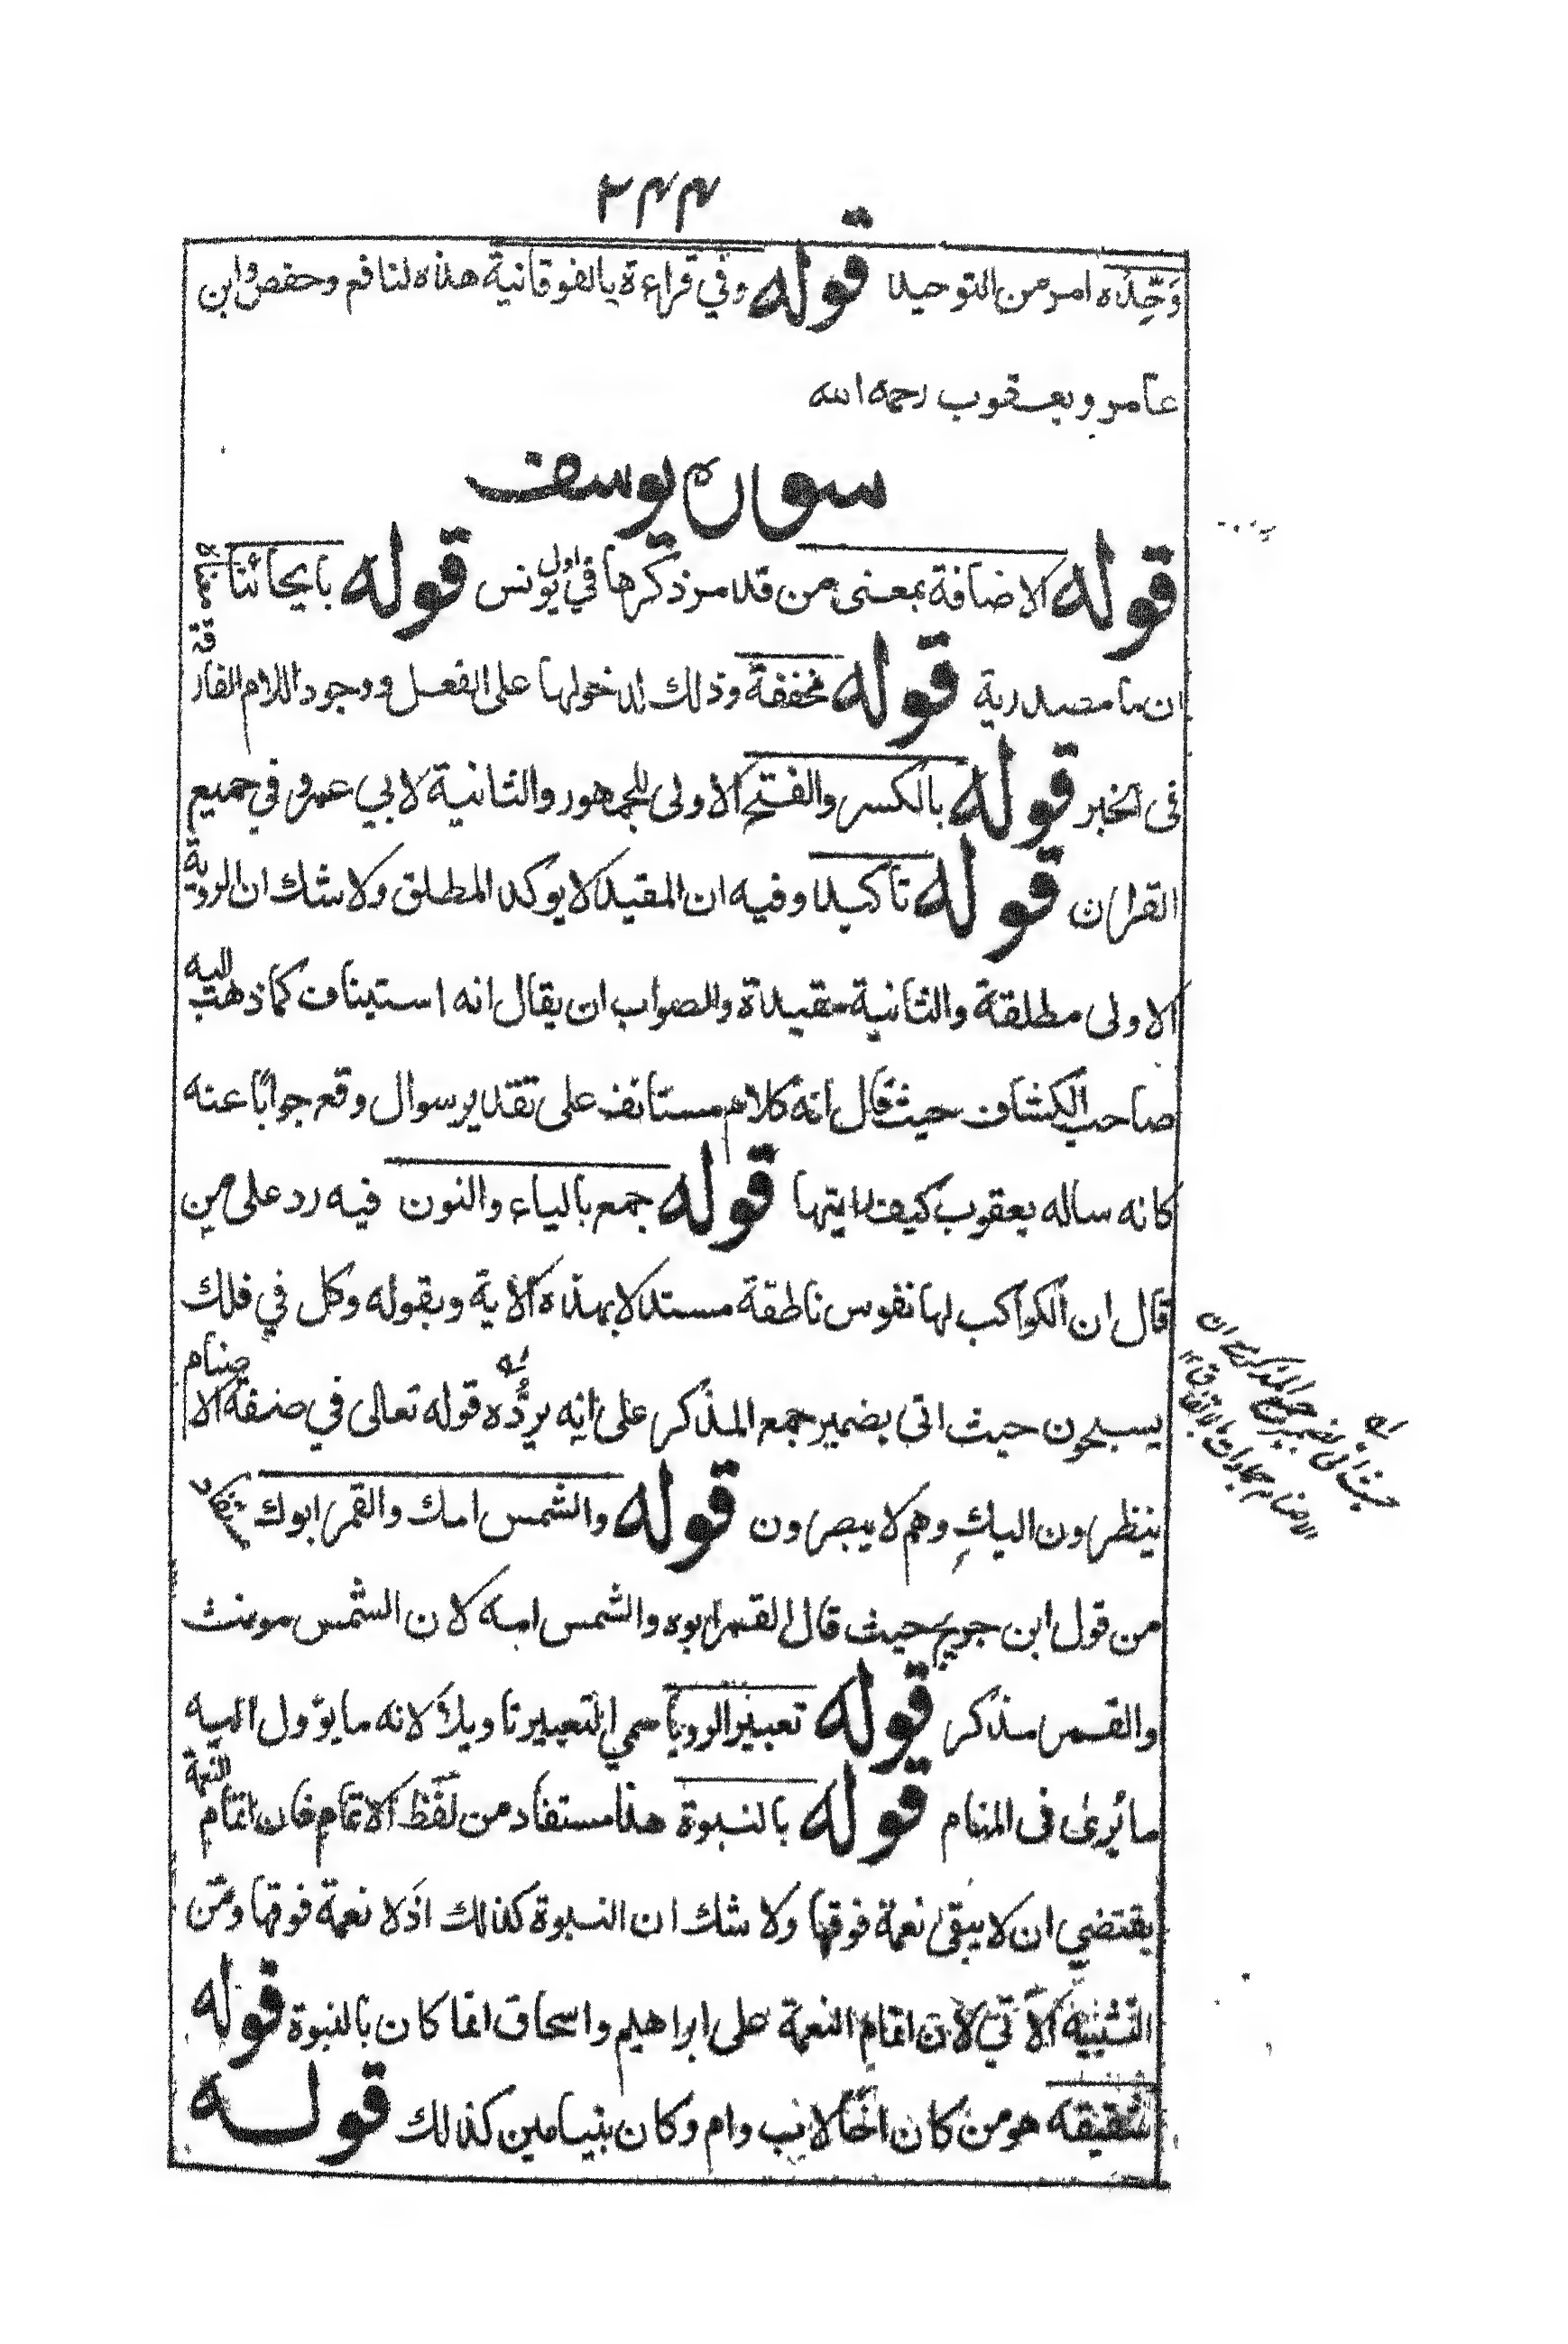 ٢٤٤
وَحِّدُه امر من التوحيد قوله وفي قراءة بالفوقانية هذه لنافع وحفص وابن
عامر ويعقوب رحمه الله
سورة يوسف
قوله الاضافة بمعنى من قد مر ذكرها في اول يونس قوله بايحائنا
ان ما مصدرية قوله مخففة وذلك لدخولها على الفعل ووجود اللام الفارقة
في الخبر قوله بالكسر والفتح الاولى للجمهور والثانية لابي عمرو في جميع
القران قوله تأكيد وفيه ان المقيد لا يوكد المطلق ولا شك ان الروية
الاولى مطلقة والثانية مقيدة والصواب ان يقال انه استيناف كما ذهب اليه
صاحب الكشاف حيث قال انه كلام مستانف على تقدير سوال وقع جوابًا عنه
كانه ساله يعقوب كيف رايتها قوله جمع بالياء والنون فيه رد على من
قال ان الكواكب لها نفوس ناطقة مستدلا بهذه الاية وبقوله وكل في فلك
يسبحون حيث اتى بضمير جمع المذكر على انه يردّه قوله تعالى في صنفة الاصنام
ينظرون اليك وهم لا يبصرون قوله والشمس امك والقمر ابوك مستفاد
من قول ابن جريج حيث قال القمر ابوه والشمس امه لان الشمس مونث
والقمر مذكر قوله تعبير الرويا سمي التعبير تاويلا لانه ما يؤول اليه
ما يُرىٰ في المنام قوله بالنبوة هذا مستفاد من لفظ الاتمام فان اتمام النعمة
يقتضي ان لا يبقى نعمة فوقها ولا شك ان النبوة كذلك اذ لا نعمة فوقها ومن
التشبيه الآتي لان اتمام النعمة على ابراهيم واسحاق انما كان بالنبوة قوله
شقيقه هو من كان اخًا لاب وام وكان بنيامين كذلك قوله
حيث اتى بضمير جمع المذكر مع ان
الاصنام جمادات بالاتفاق ١٢